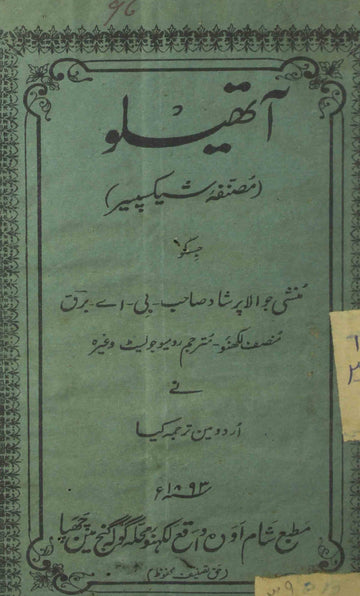 96
آتھیلو
(مصنفہ شیکسپیر)
جسکو
منشی جوالا پرشاد صاحب - بی - اے - برق
منصف لکھنؤ - مترجم رومیو جولیٹ وغیرہ
نے
اردو مین ترجمہ کیا
۱۸۹۳ء
مطبع شام اودہ واقع لکھنؤ محلہ گولہ گنج مین چھپا
(حق تصنیف محفوظ)